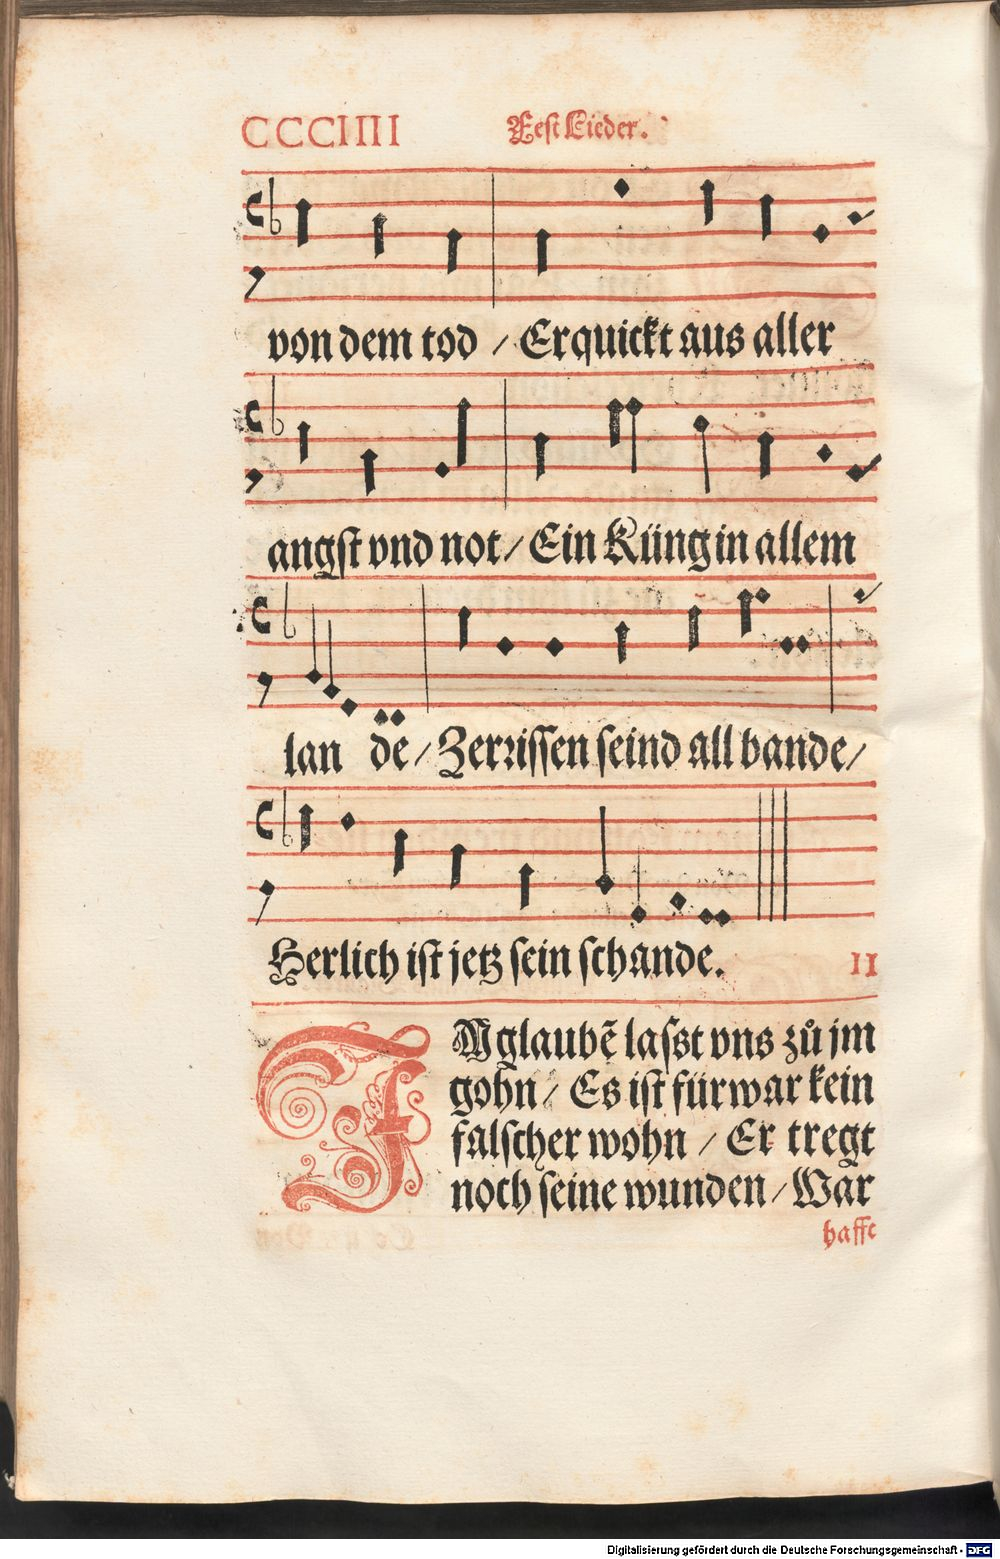 CCCIIII Fest Lieder.
von dem tod / Erquickt aus aller
angst vnd not / Ein Küng in allem
lan de / Zerrissen seind all bande /
Herlich ist jetz sein schande. II
IM glaubẽ lasst vns zů jm
gohn / Es ist fürwar kein
falscher wohn / Er tregt
noch seine wunden / War
haffe
Digitalisierung gefördert durch die Deutsche Forschungsgemeinschaft - DFG